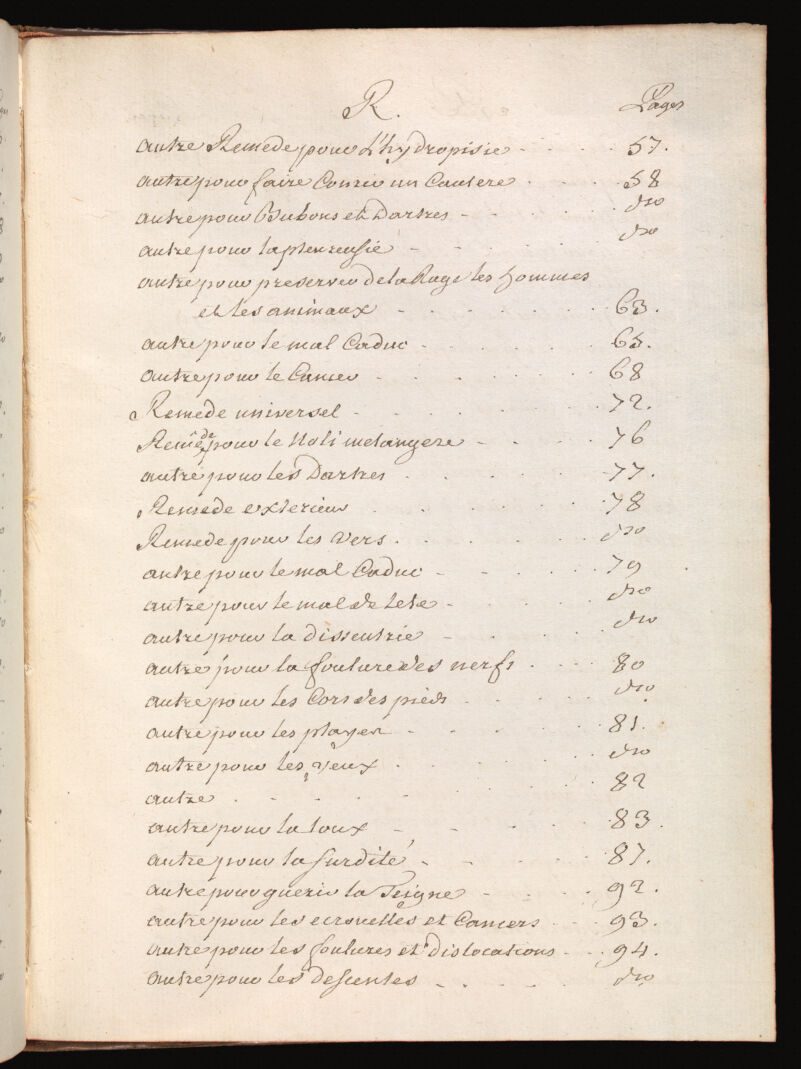 R. Pages
autre Remede pour L'hydropisie - - - - 57.
autre pour faire Courir un Cautere - - - - 58
autre pour Bubons et Dartres - - - - dto
autre pour la pleuresie - - - - dto
autre pour preserver de la Rage les hommes
et les animaux - - - - 63.
autre pour le mal Caduc - - - - 65.
autre pour le Cancer - - - - 68
Remede universel - - - - 72.
Remede pour le Noli metangere - - - - 76
autre pour les Dartres - - - - 77.
Remede exterieur - - - - 78
Remede pour les vers - - - - dto
autre pour le mal Caduc - - - - 79
autre pour le mal de tete - - - - dto
autre pour la dissentrie - - - - dto
autre pour la foulure des nerfs - - - - 80
autre pour les Cors des pieds - - - - dto
autre pour les playes - - - - 81.
autre pour les yeux - - - - dto
autre - - - - 82
autre pour la toux - - - - 83.
autre pour la surdité - - - - 87.
autre pour guerir la Teigne - - - - 92.
autre pour les ecrouelles et Cancers - - - 93.
autre pour les foulures et dislocations - - - 94.
autre pour les descentes - - - - dto